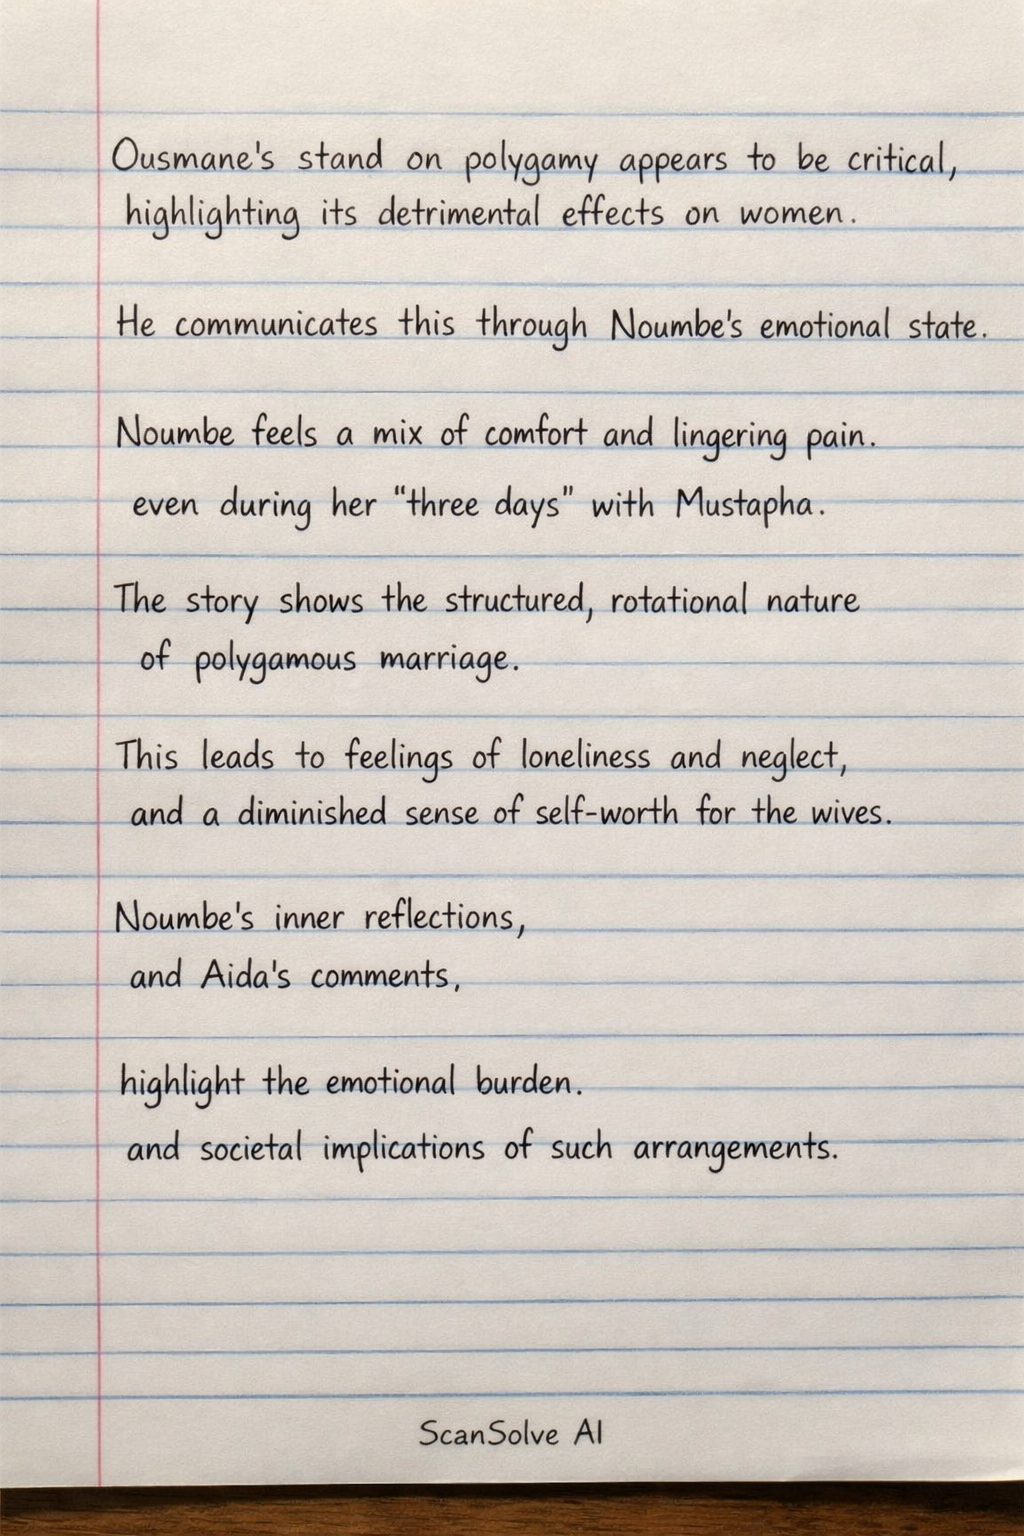 Ousmane's stand on polygamy appears to be critical,
highlighting its detrimental effects on women.
He communicates this through Noumbe's emotional state.
Noumbe feels a mix of comfort and lingering pain.
even during her "three days" with Mustapha.
The story shows the structured, rotational nature
of polygamous marriage.
This leads to feelings of loneliness and neglect,
and a diminished sense of self-worth for the wives.
Noumbe's inner reflections,
and Aida's comments,
highlight the emotional burden.
and societal implications of such arrangements.
ScanSolve AI